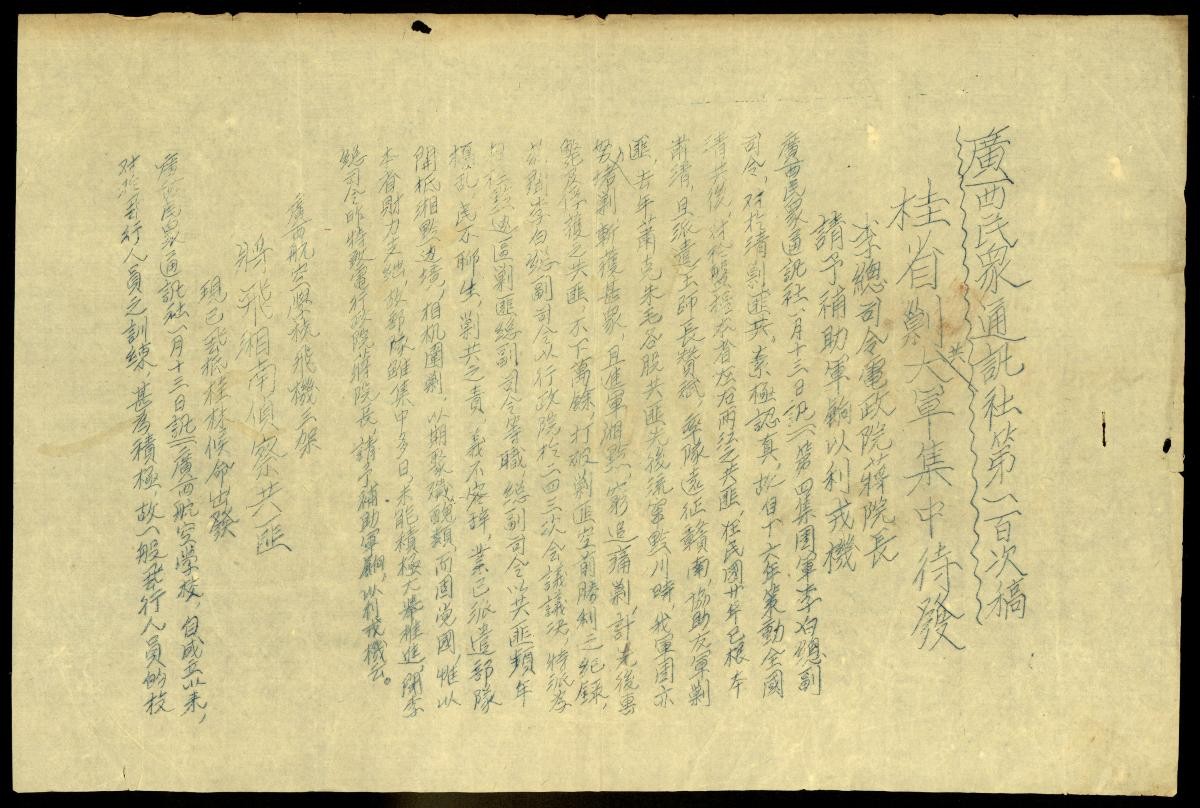 廣西民眾通訊社第一百次稿
桂省剿共大軍集中待發
李總司令電政院蔣院長
請予補助軍餉以利戎機
廣西民眾通訊社一月十三日訊一第四集團軍李白總副
司令，对於清剿匪共，素極認真，故自十六年策動全國
清共後，对於盤據本省左右兩江之共匪，在民國廿年已根本
肅清，且派遣王師長贊斌，率隊遠征贛南，協助友軍剿
匪，去年蕭克朱毛各股共匪先後流竄黔川時，我軍固亦
努力堵剿斬獲甚眾，且進軍湘黔，窮追痛剿，計先後擊
斃及俘獲之共匪，不下萬餘，打破剿匪空前勝利之紀錄，
李白總副司令以行政院於二四三次會議議決，特派李
邊區剿匪總副司令等職，總副司令以共匪頻年
擾乱，民不聊生，剿共之責，義不容辞，業已派遣部隊
開抵湘黔边境，相机圍剿，以期聚殲醜類，而固党國，惟以
本省財力支絀，故部隊雖集中多日，未能積極大舉推進，聞李
總司令昨特致電行政院蔣院長，請予補助軍餉，以利戎機云。
廣西航空學校飛機三架
將飛湘南偵察共匪
現已飛抵桂林候命出發
廣西民眾通訊社一月十三日訊二廣西航空學校，自成立以來，
对於飛行人員之訓練，甚為積極，故一般飛行人員的技